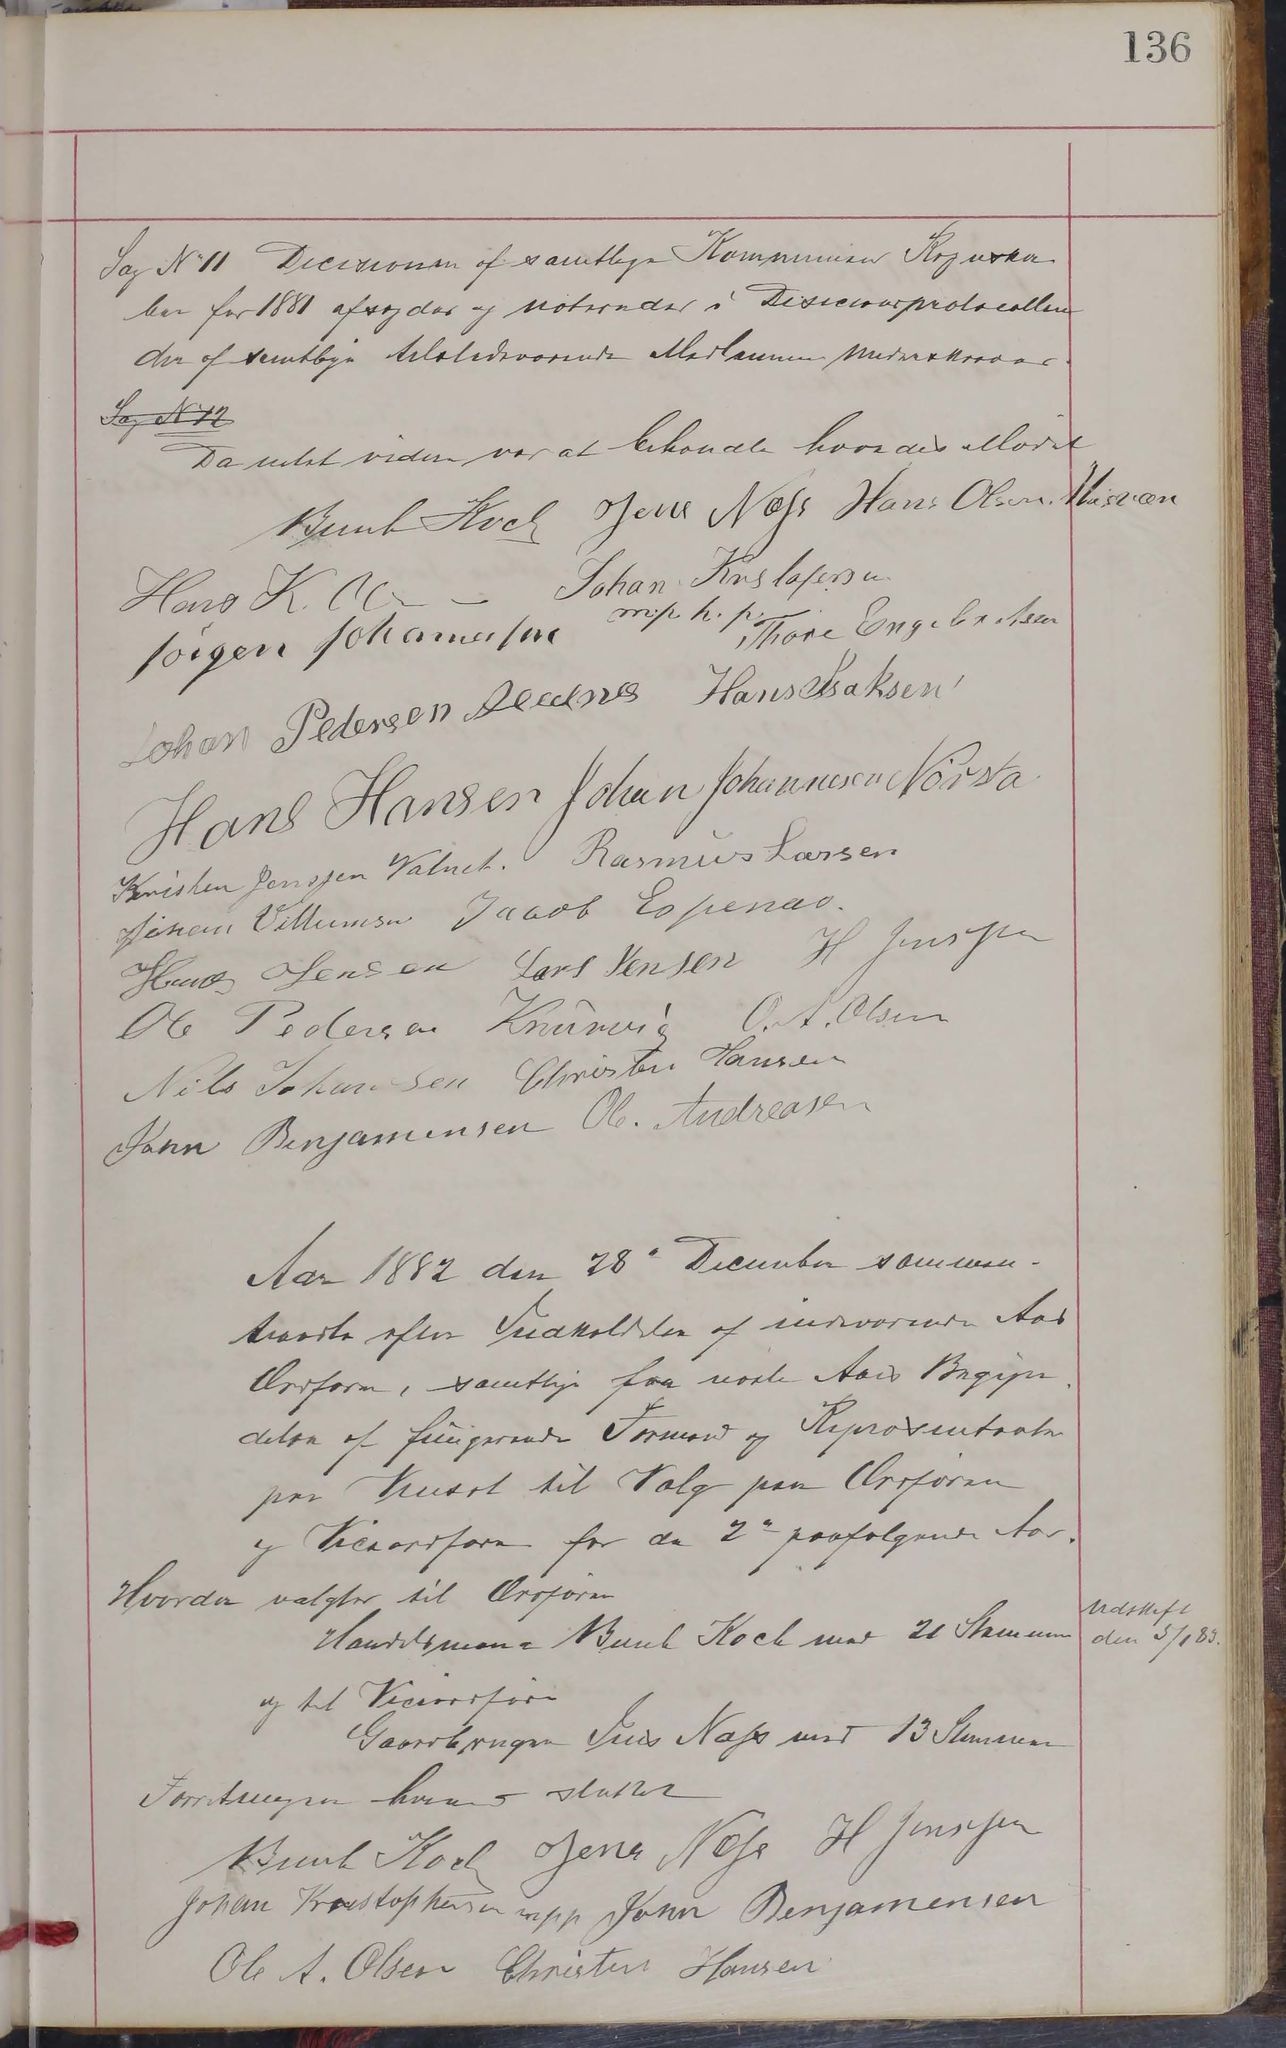 136
Sag No 11 Decisionen af samtlige Kommunens Regnska
ber for 1881 afsagdes og noteredes i Desicionsprotocollen
der af samtlige tilstedeværende Medlemmer underskreves.
Sag No 12
Da intet videre var at behandle hævedes Mødet
Bernt Koch Jens Næss Hans Olsen
Hans K. Johan Kristofersen
m. p. h. p.
Jørgen Johannesen Thore Engebretsen
Johan Pedersen Hans Isaksen
Hans Hansen Johan Johannesen Nörsta
Kristen Jenssen Valnet. Rasmus Larsen
Johan Villumsen Jacob Espenes.
Hans Jensen Lars Jensen H Jenssen
Ole Pedersen O. A. Olsen
Nils Johansen Christen Hansen
John Benjamensen Ol. Andreasen
Aar 1882 den 28de December sammen-
traadte efter Indkaldelse af indeværende Aars
Ordfører, samtlige fra næste Aars Begyn
delse af fungerende Formænd og Repræsentanter
paa til Valg paa Ordfører
og Viceordfører for de 2de paafølgende Aar.
Hvorda valgtes til Ordfører
Handelsmand Bernt Koch med 21 Stemmer
Udskrift
den 5/1 83.
og til Viceordfører
Gaardbruger Jens Næss med 13 Stemmer
Forretningen hermed sluttet
Bernt Koch Jens Næss H Jenssen
Johan Kristophersen mpp John Benjamensen
Ole A. Olsen Christen Hansen